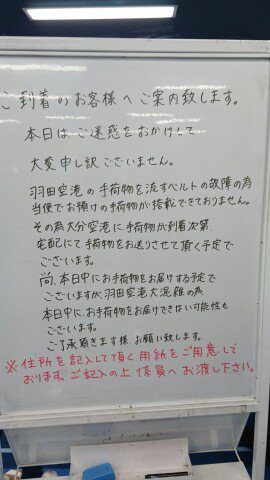 ご到着のお客様へご案内致します。
本日は、ご迷惑をおかけして
大変申し訳ございません。
羽田空港の手荷物を流すベルトの故障の為
当便でお預けの手荷物が搭載できておりません。
その為大分空港に手荷物が到着次第、
宅配にて手荷物をお送りさせて頂く予定で
ございます。
尚、本日中にお手荷物をお届けする予定で
ございますが、羽田空港大混雑の為
本日中に、お手荷物をお届けできない可能性も
ございます。
ご了承頂きます様、お願い致します。
※住所を記入して頂く用紙をご用意して
おります。ご記入の上係員へお渡し下さい。